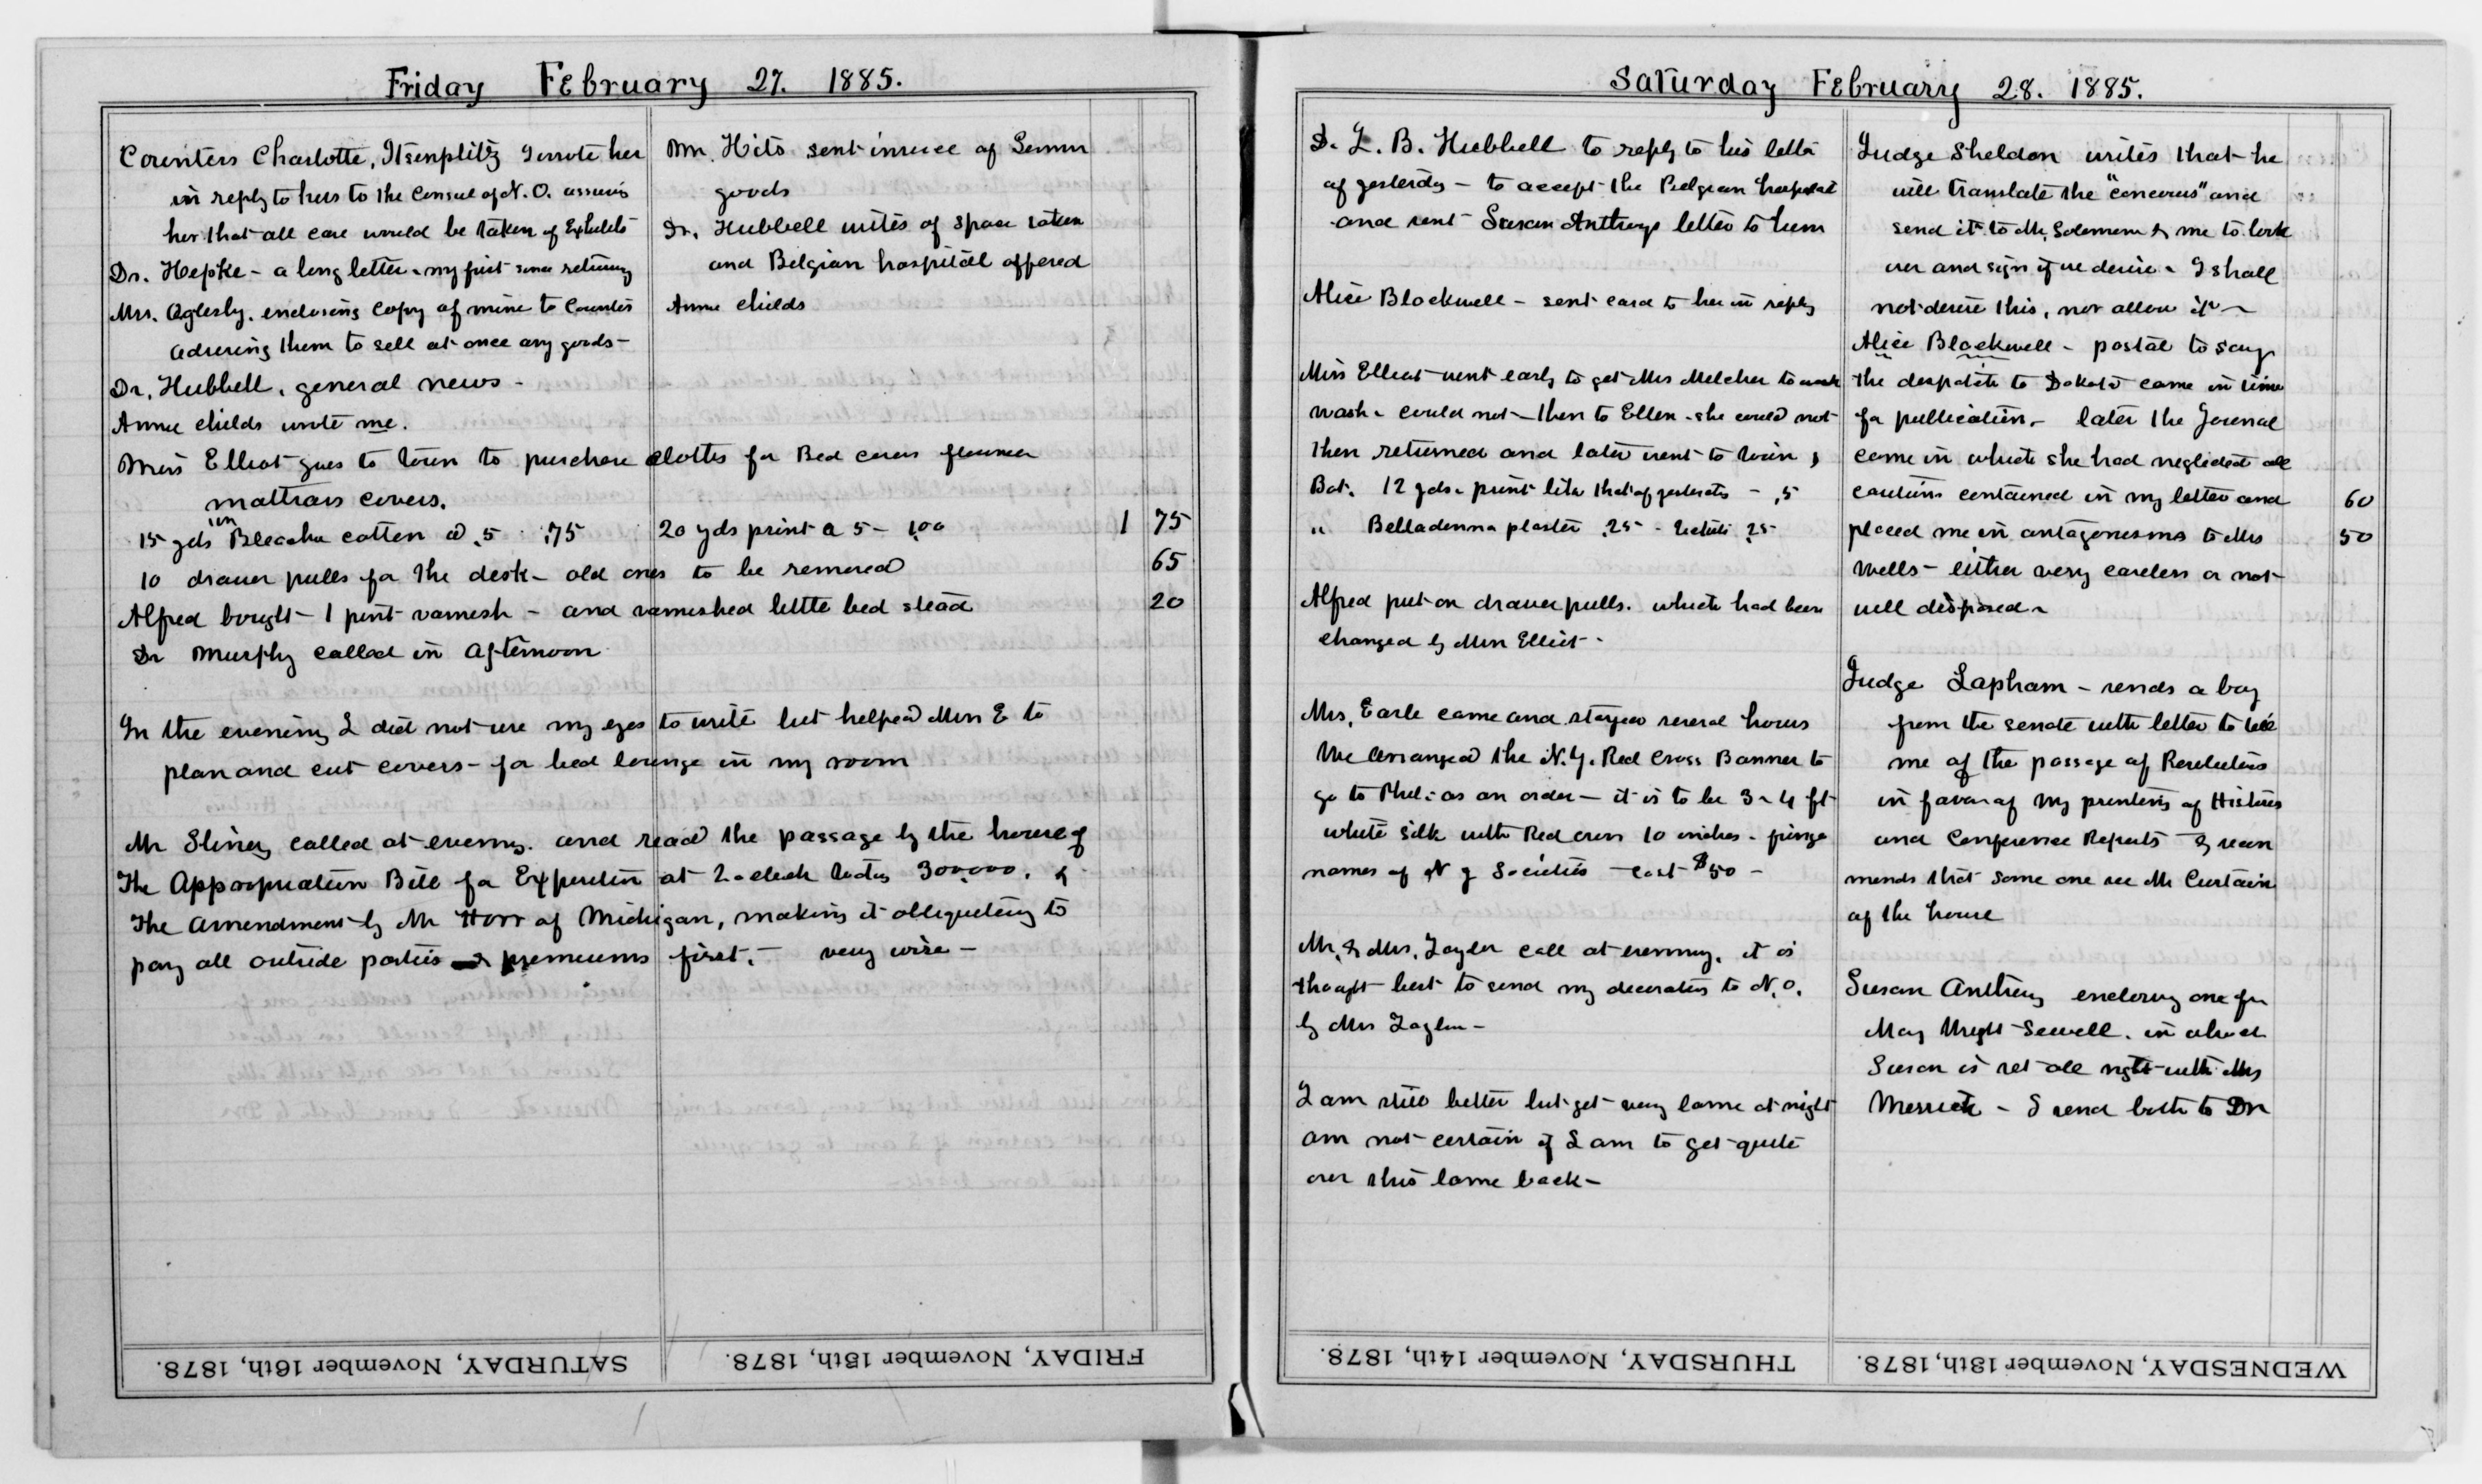 Friday February 27. 1885.
Countess Charlotte, Itzenplitz I wrote her
in reply to hers to the Consul of N.O. assuring
her that all care would be taken of Exhibits
Dr. Hepke - a long letter - my first since returning
Mrs. Oglesby. enclosing copy of mine to Countess
advising them to sell at once any goods -
Dr. Hubbell. general news -
Annie Childs wrote me.
Mr. Hitz sent invoice of
goods
Dr. Hubbell writes of space taken
and Belgian hospital offered
Annie Childs
Miss Elliot goes to town to purchase cloths for Bed cover
mattrass covers.
15 yds Bleachd cotton @ .5 .75 20 yds print a 5 - 1.00 1 75
10 drawer pulls for the desk - old ones to be removed 65
Alfred bought - 1 pint varnish - and varnished little bed stead 20
Dr Murphy called in afternoon
In the evening I did not use my eyes to write but helped Miss E to
plan and cut covers - for bed lounge in my room
Mr called at evening. and read the passage by the house of
The Appropriation Bill for Expositin at 2 oclock today 300,000. &
The amendment by Mr Horr of Michigan, making it obligatory to
pay all outside parties & premiums first. - very wise -
SATURDAY, November 16th, 1878.
FRIDAY, November 15th, 1878.
Saturday February 28. 1885.
D. L. B. Hubbell to reply to his letter
of yesterday - to accept the Belgian hospital
and sent Susan Anthonys letter to him
Alice Blackwell - sent card to her in reply
Miss Elliot went early to get Mrs Melcher to
wash - could not - then to Ellen - she could not
then returned and later went to town,
Bot. 12 yds - print like that of yesterday - .5
" Belladonna plaster .25 - .25
Alfred put on drawer pulls. which had been
changed by Miss Elliot -
Mrs. Earle came and stayed several hours
We arranged the N.Y. Red Cross Banner to
go to Phil: as an order - it is to be 3 - 4 ft
white silk with Red cross 10 inches - fringe
names of N Y Societies - cost $50 -
Mr. & Mrs. Taylor call at evening. it is
thought best to send my decorations to N.O.
by Mrs Taylor -
I am still better but get very lame at night
am not certain if I am to get quite
over this lame back -
Judge Sheldon writes that he
will translate the "concours" and
send it to Mr. Solomons & me to look
over and sign if we desire - I shall
not desire this, nor allow it -
Alice Blackwell - postal to say
the despatch to Dakota came in time
for publication. - later the Journal
came in which she had neglected all
cautions contained in my letter and 60
placed me in antagonisms to Mrs 50
Wells - either very careless or not
well disposed -
Judge Lapham - sends a boy
from the senate with letter to tell
me of the passage of Resolutions
in favor of my printing of Histories
and Conference Reports & recom
mends that some one see Mr Curtain
of the house
Susan Anthony enclosing one for
May Wright Sewell. in which
Susan is set all right with Mrs
Merrick - I send both to Dr
THURSDAY, November 14th, 1878.
WEDNESDAY, November 13th, 1878.